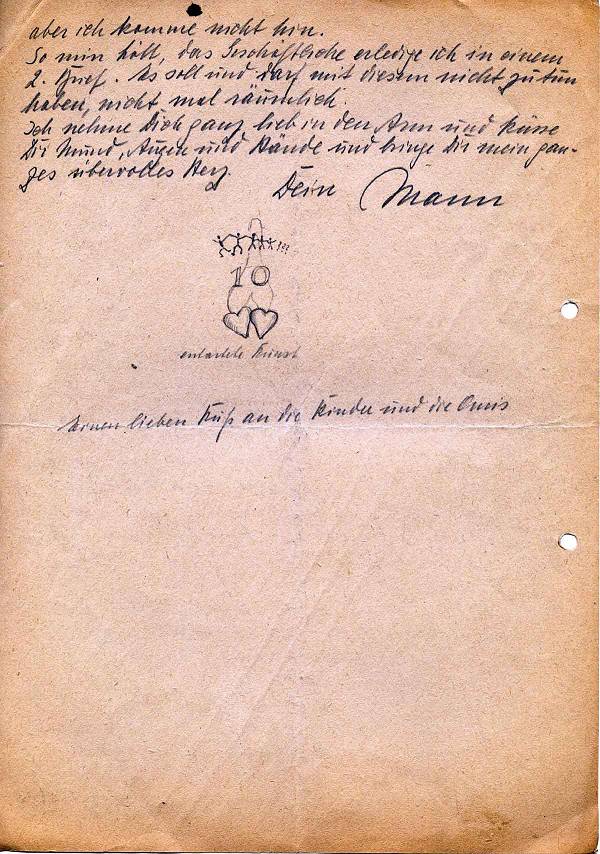 aber ich komme nicht hin.
So min Lütt, das Geschäftliche erledige ich in einem
2. Brief. Es soll und darf mit diesem nicht zu tun
haben, nicht mal räumlich.
Ich nehme Dich ganz lieb in den Arm und küsse
Dir Mund, Augen und Hände und bringe Dir mein gan-
zes übervolles Herz.
Dein Mann
!!!
10
entartete Kunst
Einen lieben Kuß an die Kinder und die Omis